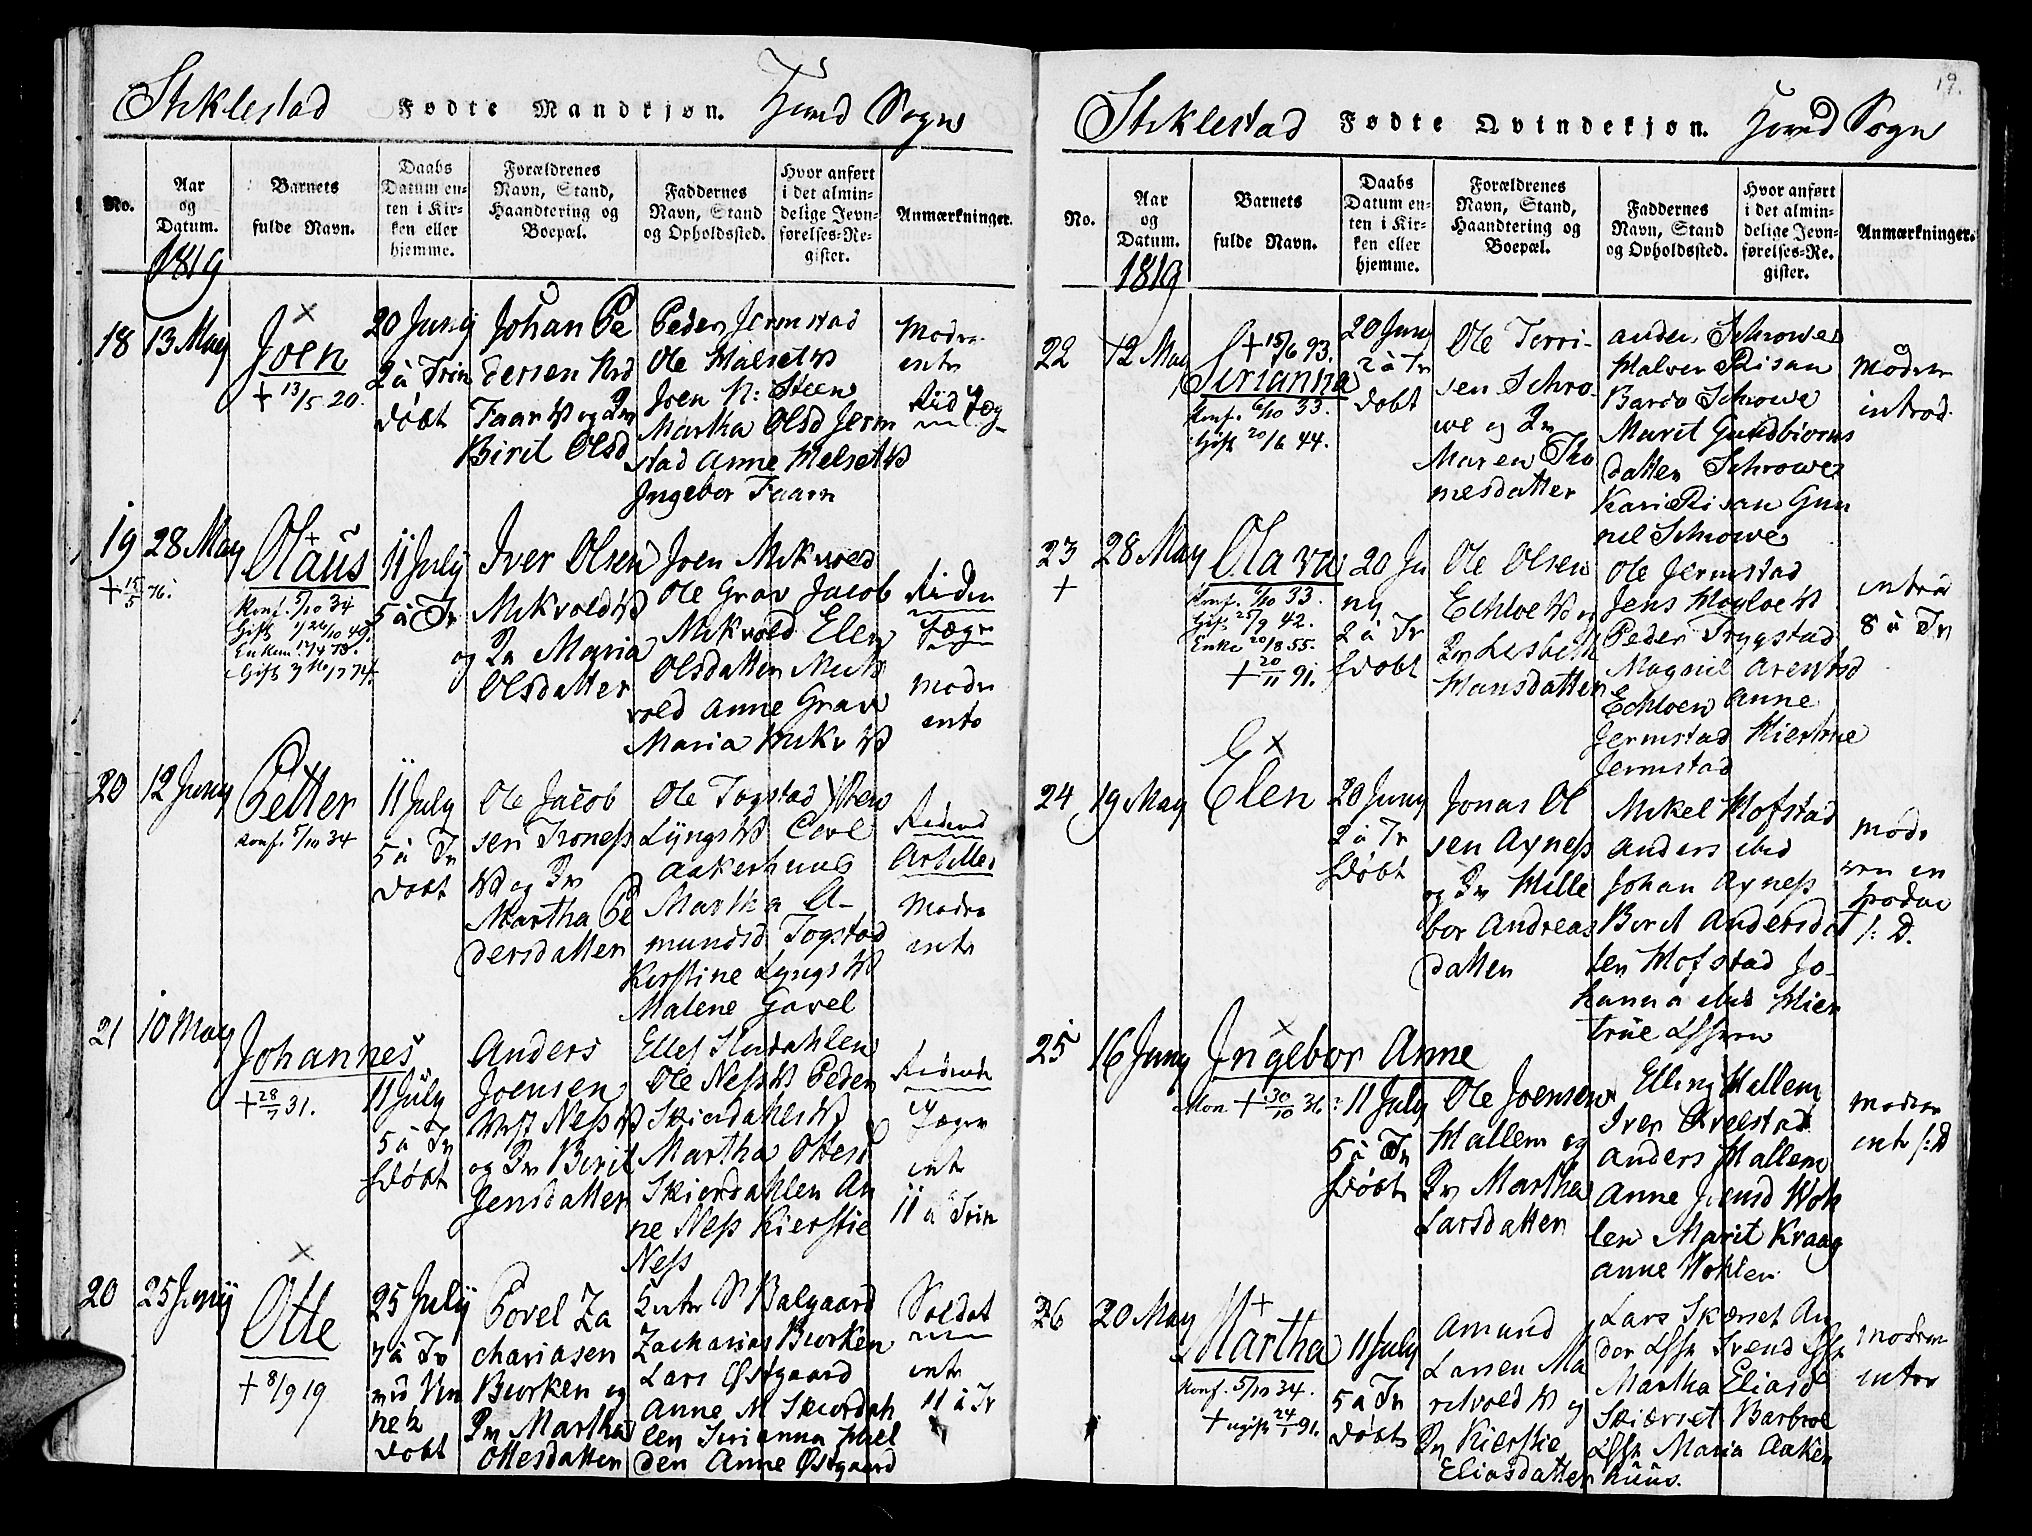 Stiklestad Fødte Mandkjøn. Hoved Sogn
No.
Aar
og
Datum.
1819
Barnets
fulde Navn.
Daabs
Datum en-
ten i Kir-
ken eller
hjemme.
Forældrenes
Navn, Stand,
Haandtering og
Boepæl.
Faddernes
Navn, Stand
og Opholdssted.
Hvor anført
i det almin-
delige Jevn-
førelses-Re-
gister.
Anmærkninger.
18
13 May
Joen
+ 13/5 20.
20 Juny
2 à Trin
døbt
Johan Pe
dersen
Faar og
Birit Olsd
Peder Jermstad
Ole Halset
Joen N: Steen
Martha Olsd Jerm
stad Anne Helset
Ingebor Faarn
Modr
intr
Rid Jæg
19
+ 15/5 76.
28 May
Olaus
Konf. 5/10 34
11 July
5 à Tr
Iver Olsen
Mikvold
og Maria
Olsdatter
Joen Mikvold
Ole Grav Jacob
Mikvold Elen
Olsdatter Mik
vold Anne Grav
Maria Mikv
Riden
Jægr
modr
intr
20
12 Juny
Petter
Konf. 5/10 34
11 July
5 à Tr
døbt
Ole Jacob
sen Troness
og
Martha Pe
dersdatter
Ole Togstad
Lyngs
Aakerhuus
Martha A-
mundsd Togstad
Kirstine Lyngs
Malene Gavel
Ridend
Artilles
Modr
intr
21
10 May
Johannes
+ 28/7 31.
11 July
5 à Tr
døbt
Anders
Joensen
Ness
og Birit
Jensdatter
Ellef Skiedahlen
Ole Ness Peder
Skierdahls
Martha Ottesd
Skierdahlen An
ne Ness Kierstie
Ness
Ridende
Jæger
intr
11 à Trin
20
25 Juny
Otte
+ 8/9 19
25 July
7 à Tr
døbt
Povel Za
chariasen
Burken og
Martha
Ottesdatter
Balgaard
Zacharias Burken
Lars Østgaard
Anne M Skierdah
len Sirianna
den Anne Østgaard
Soldat
intr
11 à Tr
19.
Stiklestad Fødte Qvindekjøn. Hoved Sogn
No.
Aar
og
Datum.
1819
Barnets
fulde Navn.
Daabs
Datum en-
ten i Kir-
ken eller
hjemme.
Forældrenes
Navn, Stand,
Haandtering og
Boepæl.
Faddernes
Navn, Stand
og Opholdssted.
Hvor anført
i det almin-
delige Jevn-
førelses-Re-
gister.
Anmærkninger.
22
12 May
+ 15/6 93.
Sirianna
Konf. 6/10 33.
Gift 20/6 44.
20 Juny
2 à Tr
døbt
Ole Torri-
sen Schro-
we og
Maren Tho
mesdatter
Schrowe
Halver Risan
Bardo Schrowe
Marit Gundbiorns
datter Schrowe
Kari Risan Gun
nel Schrowe
Modrn
introd.
23
+
28 May
Olava
Konf. 6/10 33.
Gift 25/9 42.
Enke 20/8 55.
+ 20/11 91.
20 Ju
ny
2 à Tr
døbt
Ole Olsen
Echloe
Lisbeth
Hansdatter
Ole Jermstad
Jens
Peder Trygstad
Magnil Arentsd
Echloen Anne
Jermstad Kierstine
Jermstad
introd
8 à Tr
24
19 May
Elen
20 Juny
2 à Tr
døbt
Jonas Ol
sen Axness
og Hille
bor Andreas
datter
Mikel Hofstad
Anders ibid
Johan Axness
Birit Andersdat
ter Hofstad Jo-
hanna ibid Kier
modr
ren in
troduc
s: D.
25
16 Juny
Ingebor Anne
+ 30/10 36?
11 July
5 à Tr
døbt
Ole Joensen
Hallem og
Martha
Larsdatter
Elling Hallem
Iver Qvelstad
Anders Hallem
Anne Jensd Woh
len Marit Kraag
Anne Wohlen
modrn
intr s: D
26
20 May
Martha
Konf. 5/10 34.
+ ugift 24/1 91.
11 July
5 à Tr
døbt
Amund
Larsen Ma
ritvold og
Kierstie
Eliasdatter
Lars Skierset An
Martha Eliasd
Skierset Barbroe
Maria Aaker
huus.
modrn
intro